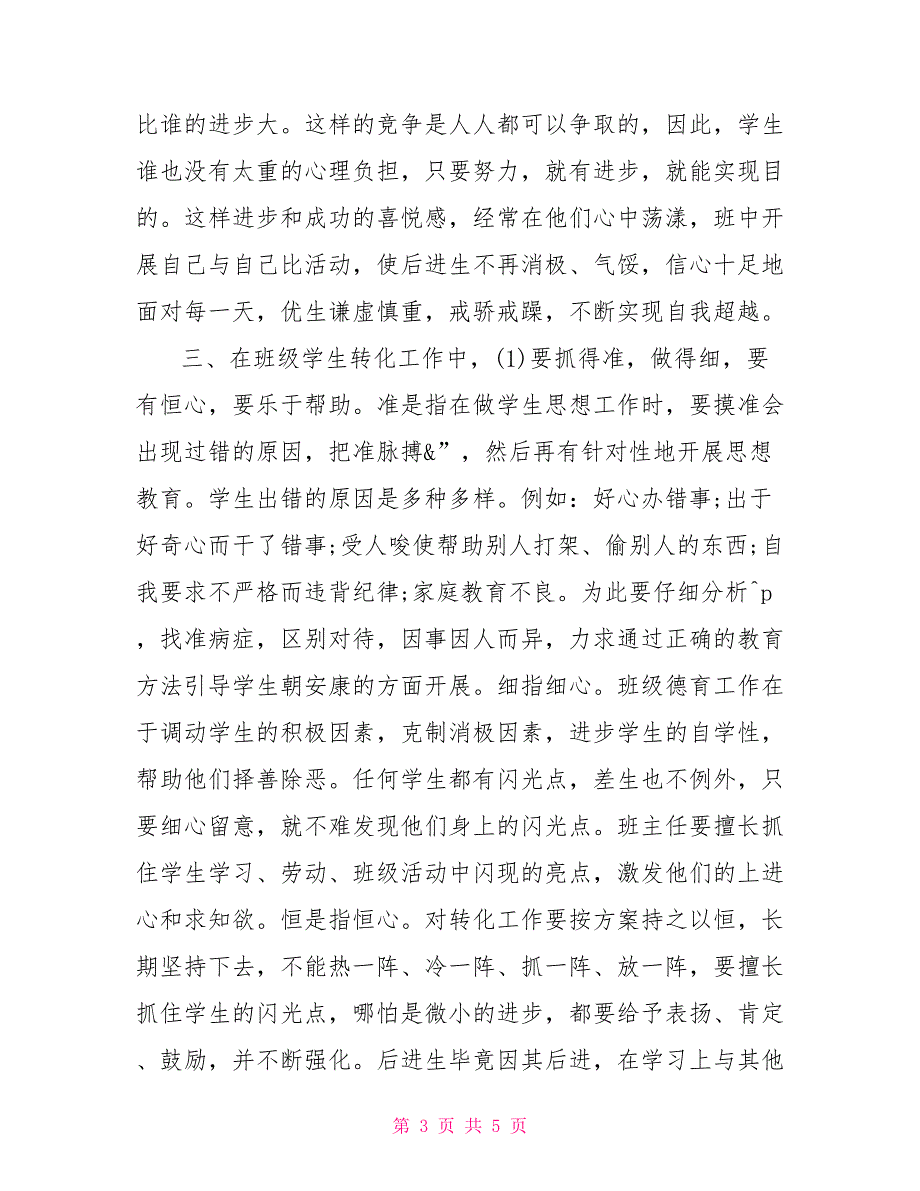 比谁的进步大。这样的竞争是人人都可以争取的，因此，学生
谁也没有太重的心理负担，只要努力，就有进步，就能实现目
的。这样进步和成功的喜悦感，经常在他们心中荡漾，班中开
展自己与自己比活动，使后进生不再消极、气馁，信心十足地
面对每一天，优生谦虚慎重，戒骄戒躁，不断实现自我超越。
三、在班级学生转化工作中，(1)要抓得准，做得细，要
有恒心，要乐于帮助。准是指在做学生思想工作时，要摸准会
出现过错的原因，把准脉搏&”，然后再有针对性地开展思想
教育。学生出错的原因是多种多样。例如：好心办错事;出于
好奇心而干了错事;受人唆使帮助别人打架、偷别人的东西;自
我要求不严格而违背纪律;家庭教育不良。为此要仔细分析^p
，找准病症，区别对待，因事因人而异，力求通过正确的教育
方法引导学生朝安康的方面开展。细指细心。班级德育工作在
于调动学生的积极因素，克制消极因素，进步学生的自学性，
帮助他们择善除恶。任何学生都有闪光点，差生也不例外，只
要细心留意，就不难发现他们身上的闪光点。班主任要擅长抓
住学生学习、劳动、班级活动中闪现的亮点，激发他们的上进
心和求知欲。恒是指恒心。对转化工作要按方案持之以恒，长
期坚持下去，不能热一阵、冷一阵、抓一阵、放一阵，要擅长
抓住学生的闪光点，哪怕是微小的进步，都要给予表扬、肯定
、鼓励，并不断强化。后进生毕竟因其后进，在学习上与其他
第 3 页 共 5 页